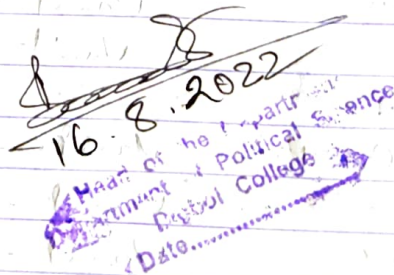 16.8.2022
Head of the
Department of Political Science
College
Date..............................